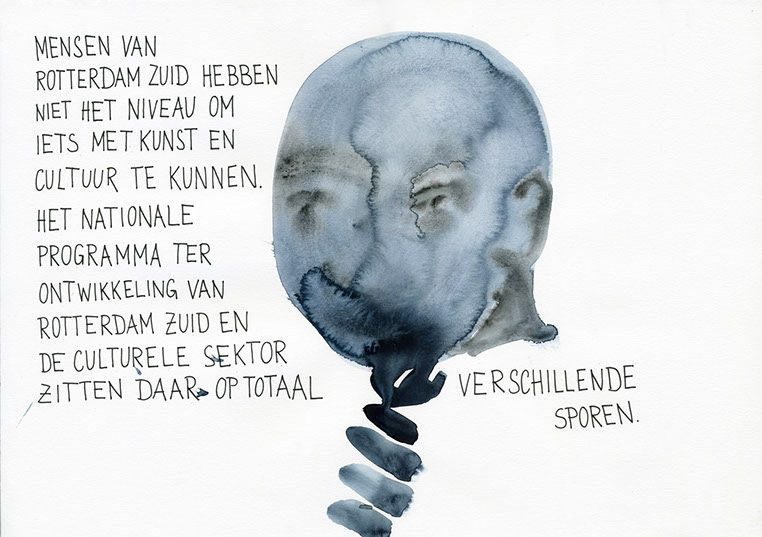 MENSEN VAN
ROTTERDAM ZUID HEBBEN
NIET HET NIVEAU OM
IETS MET KUNST EN
CULTUUR TE KUNNEN.
HET NATIONALE
PROGRAMMA TER
ONTWIKKELING VAN
ROTTERDAM ZUID EN
DE CULTURELE SEKTOR
ZITTEN DAAR OP TOTAAL VERSCHILLENDE
SPOREN.